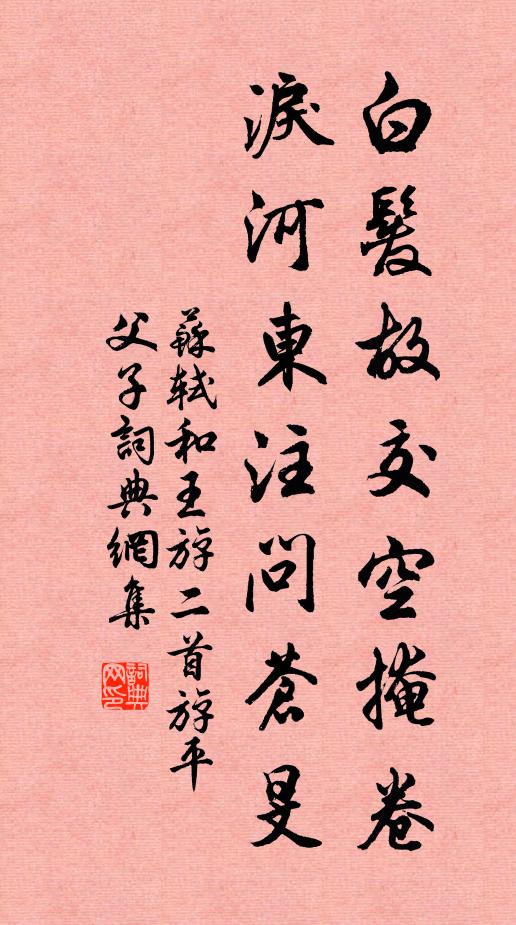 白髮故交空掩卷
淚河東注問蒼旻
蘇軾和王斿二首斿平
父子詞典網集
詞典
网印